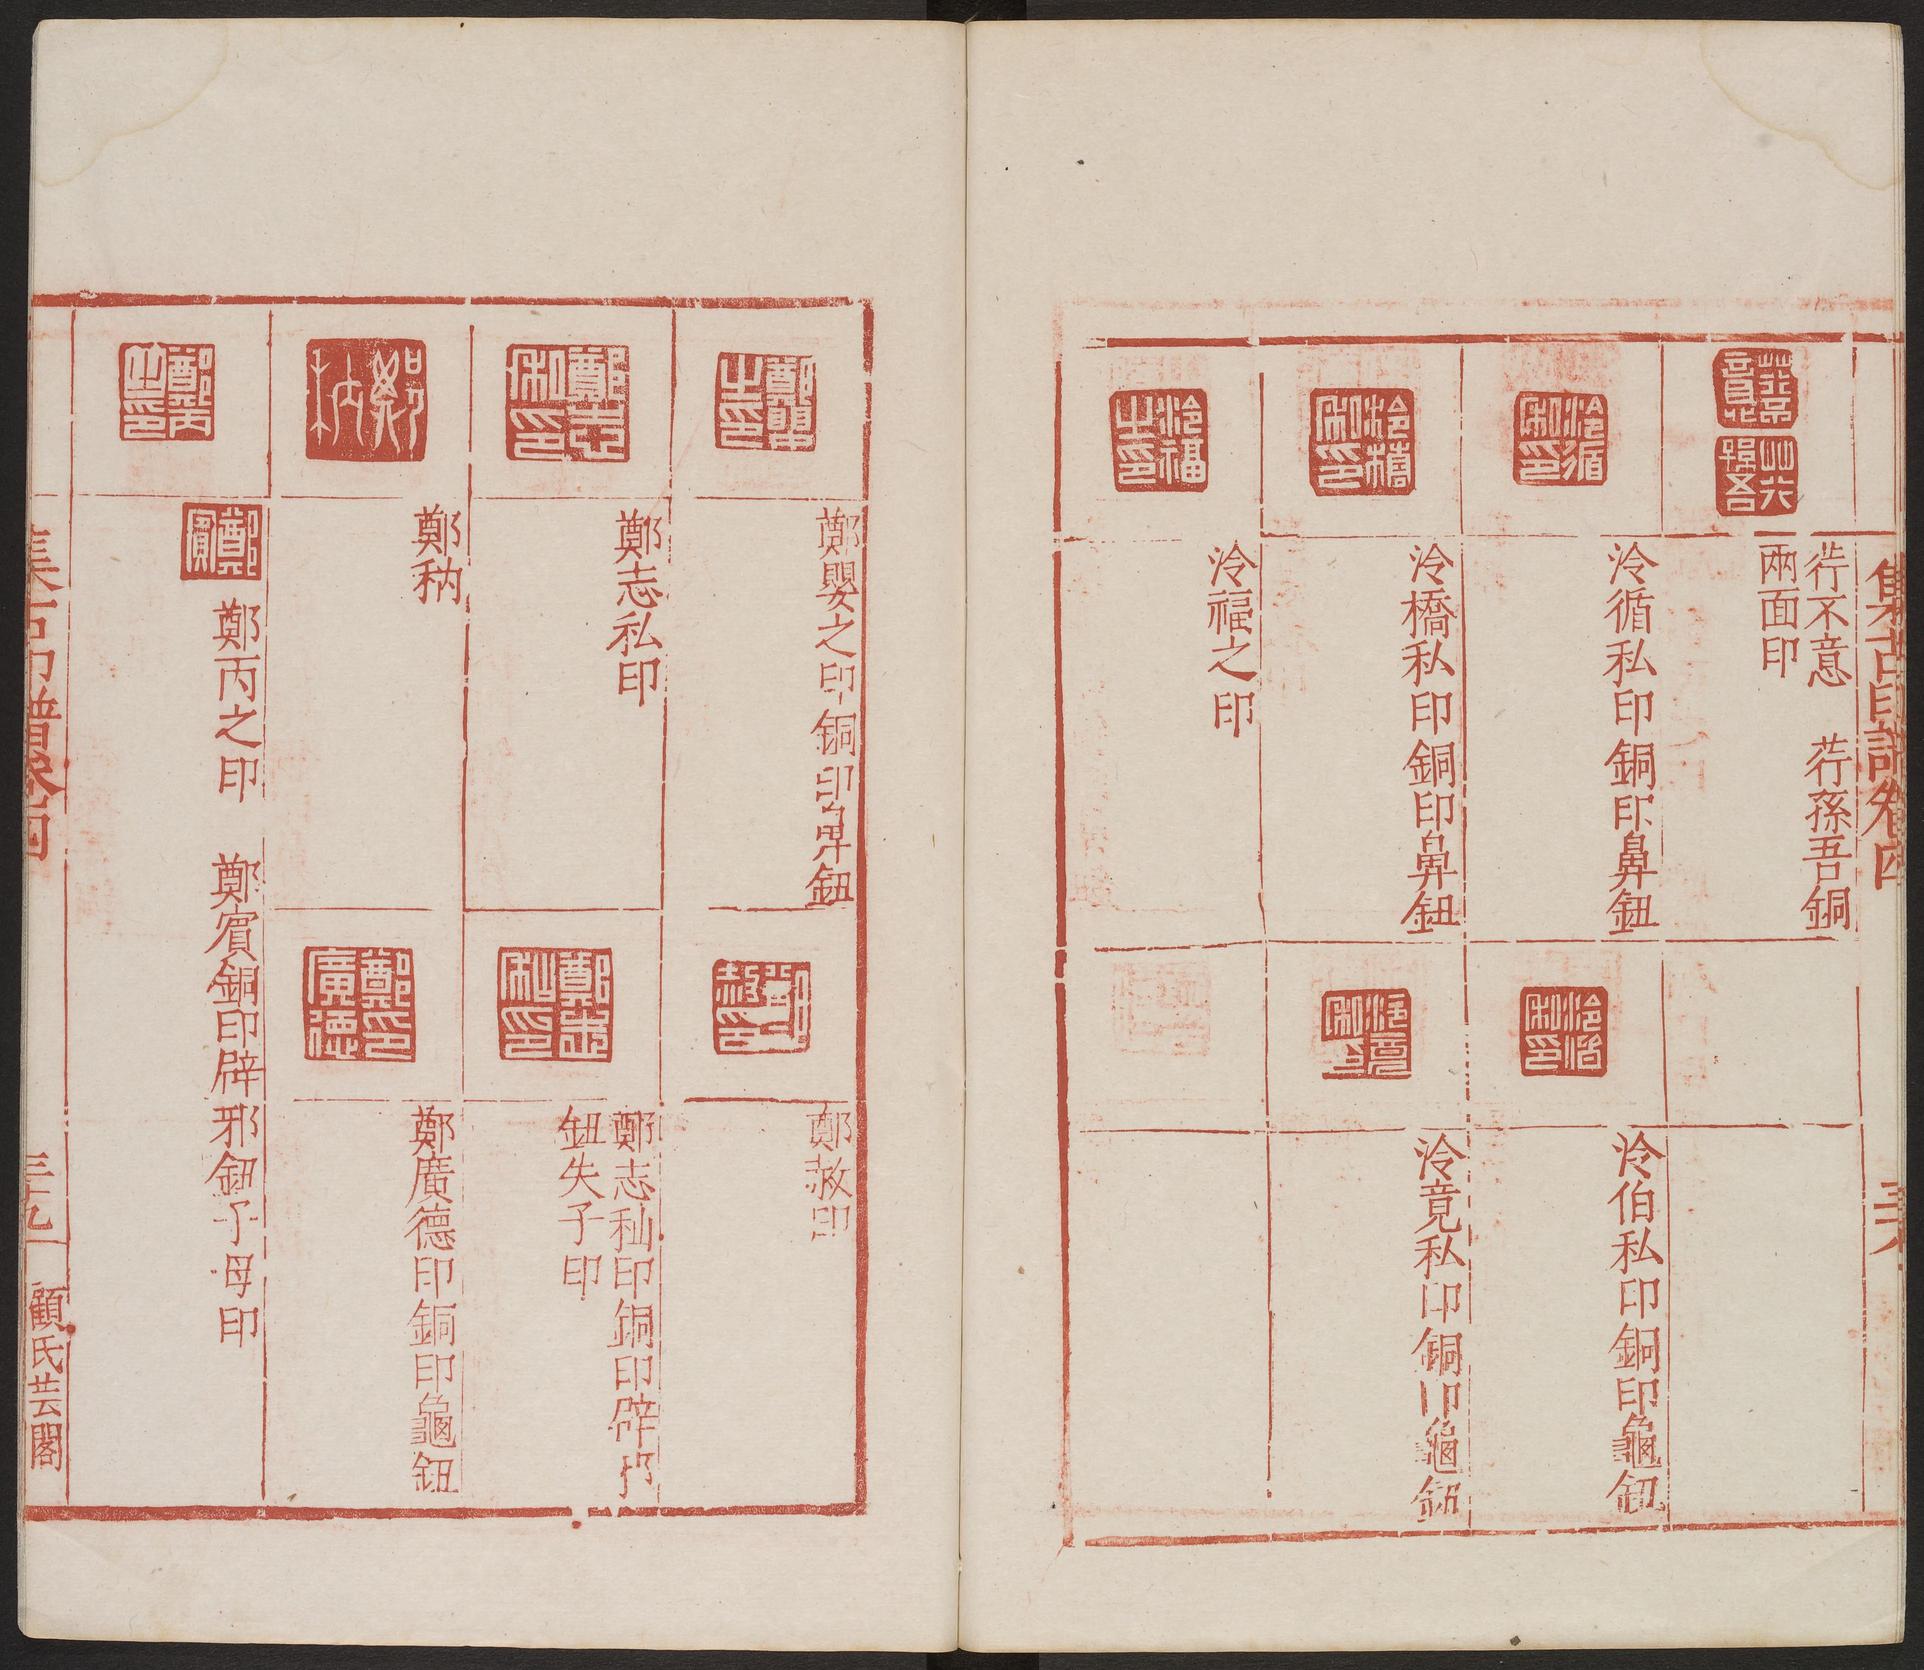 集古印譜卷四
三八
荇不意 荇孫吾銅
兩面印
泠循私印銅印鼻鈕
泠橋私印銅印鼻鈕
泠福之印
泠伯私印銅印龜鈕
泠竟私印銅印龜鈕
鄭嬰之印銅印鼻鈕
鄭志私印
鄭𥘉
鄭丙之印 鄭賓銅印辟邪鈕子母印
鄭赦印
鄭志私印銅印辟邪
鈕失子印
鄭廣德印銅印龜鈕
集古印譜卷四
三九
顧氏芸閣